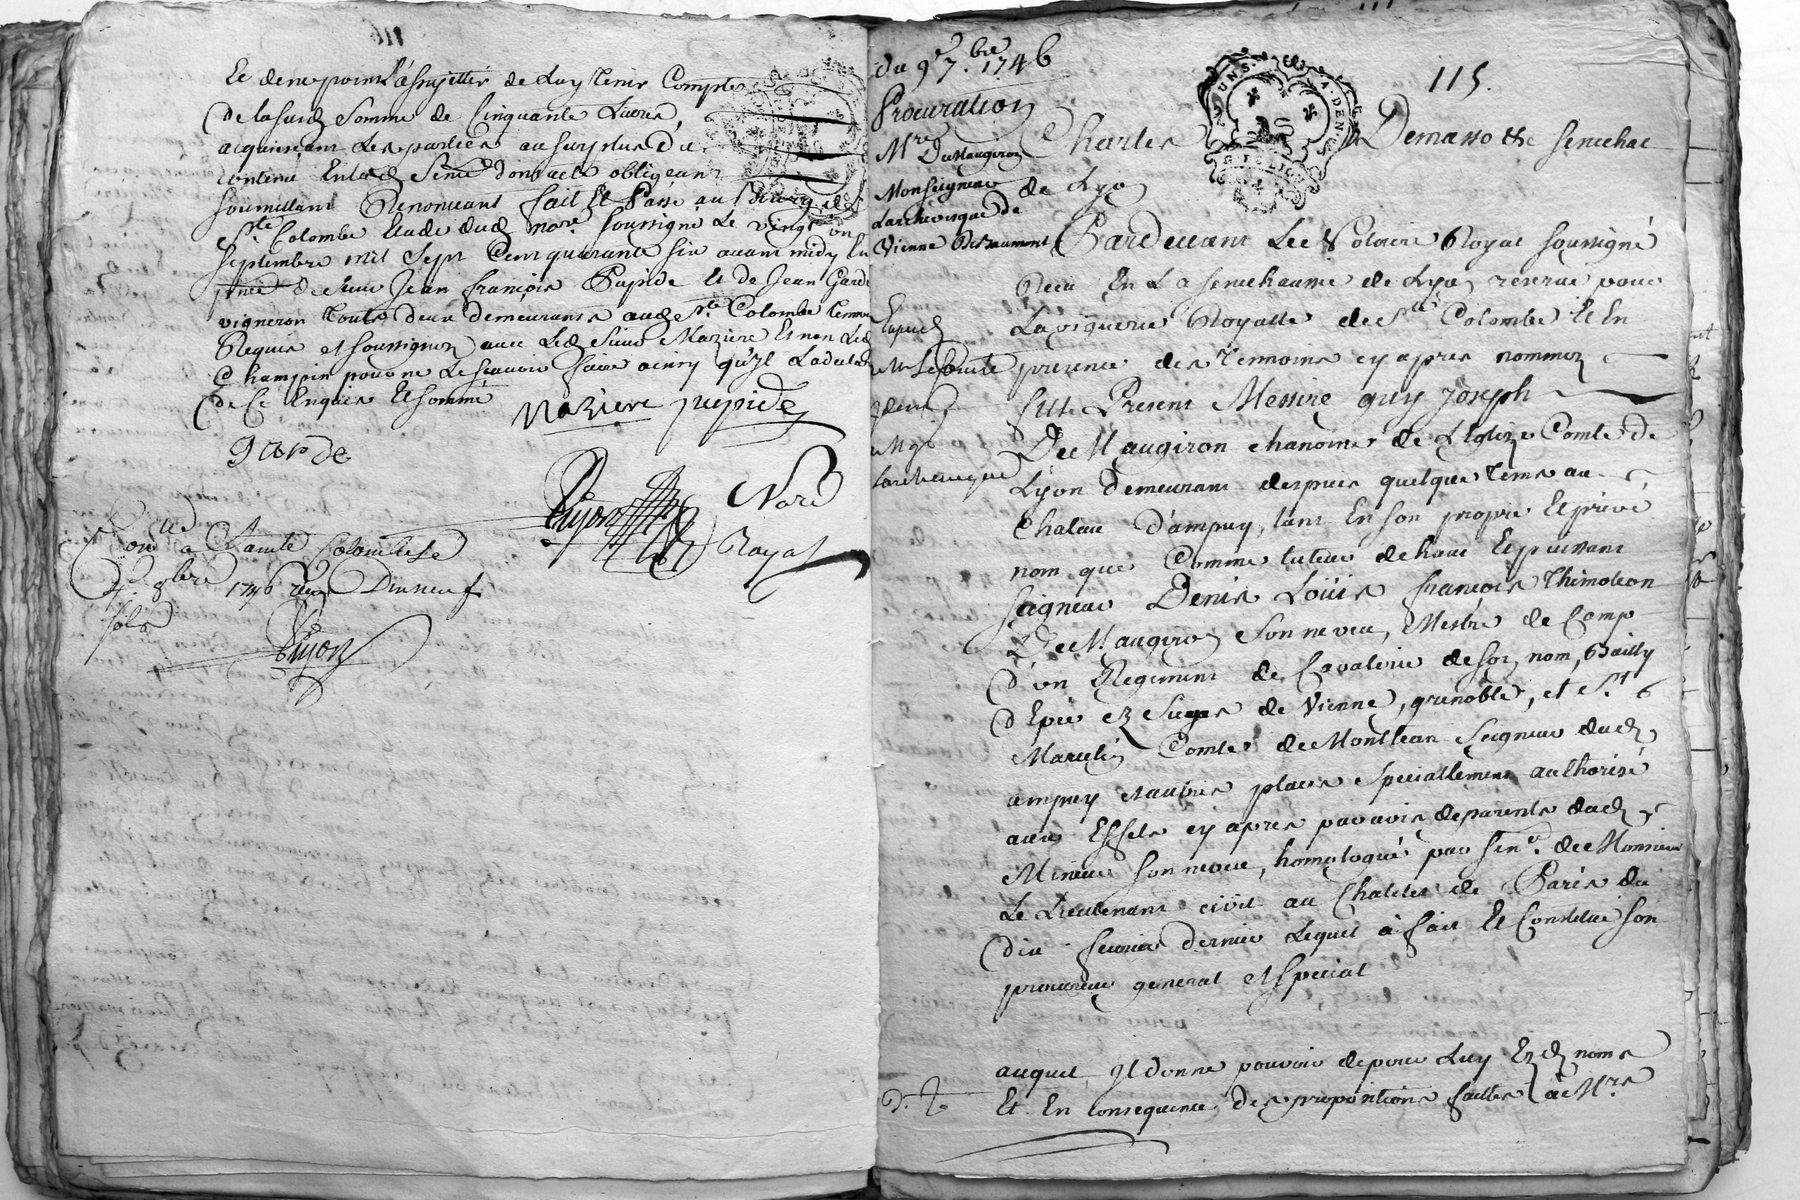 Et de ne point l'assujetter de Luy tenir Compte
De lasusd Somme de Cinquante Livres,
acquiessant Les parties au surplus du
contenu Enlad Sence dont acte obligeant
soumettant Renonceant fait Et Passé au Bourg de
Ste Colombe Etude dud nore soussigné Le vingt un
septembre mil sept Cent quarante six avant midy En
pnce de sieur Jean françois Pupide Et de Jean Garde
vigneron touts deux demeurants aud Ste Colombe temoins
Requis et soussignez avec Led sieur Mazière Et non Led
Champin pour ne Le scavoir faire ainsy qu'il La declaré
De Ce Enquis Et sommé
Mazière pupide
garde
Guyon Nore
Royal
Conllé a Sainte Colombe Le
4e 8bre 1746 reçu Dixneuf
sols
Guyon
du 9e 7.bre 1746
Procuration
Mre De Maugiron
Monseigneur
Larchevesque de
Vienne De Beaumont
Expied
a Mr Le Comte
idem
a Mgr
Larcheveque
115.
Charles Demasso &c senechal
de Lyon
Pardevant Le Notaire Royal soussigné
Receu En La senechaussée de Lyon réservé pour
La viguerie Royalle de Ste Colombe Et En
presence des temoins cy apres nommez
fut Present Messire guy joseph
De Maugiron chanoine de L'Eglize Comte de
Lyon demeurant despuis quelque tems au
Chateau d'ampuy, tant En son propre Et privé
nom que Comme tuteur de haut Et puissant
seigneur Denis Loüis françois Thimoleon
De Maugiron son neveu, Mestre de Camp
d'un Regiment de Cavalerie de son nom, Bailly
d'Epée ez sieges de Vienne, grenoble, et St
Marcelin Comte de Montlean Seigneur dud
ampuy et autres places speciallement authorisé
aux Effets cy apres par avis de parents dud
Mineur son neveu, homologué par snce. de Monsieur
Le Lieutenant civil au Chatelet de Paris du
dix fevrier dernier Lequel à fait Et Constitué son
procureur general et special
auquel Il donne pouvoir de pour Luy Ezd noms
Et En consequence des propositions faittes à Mre